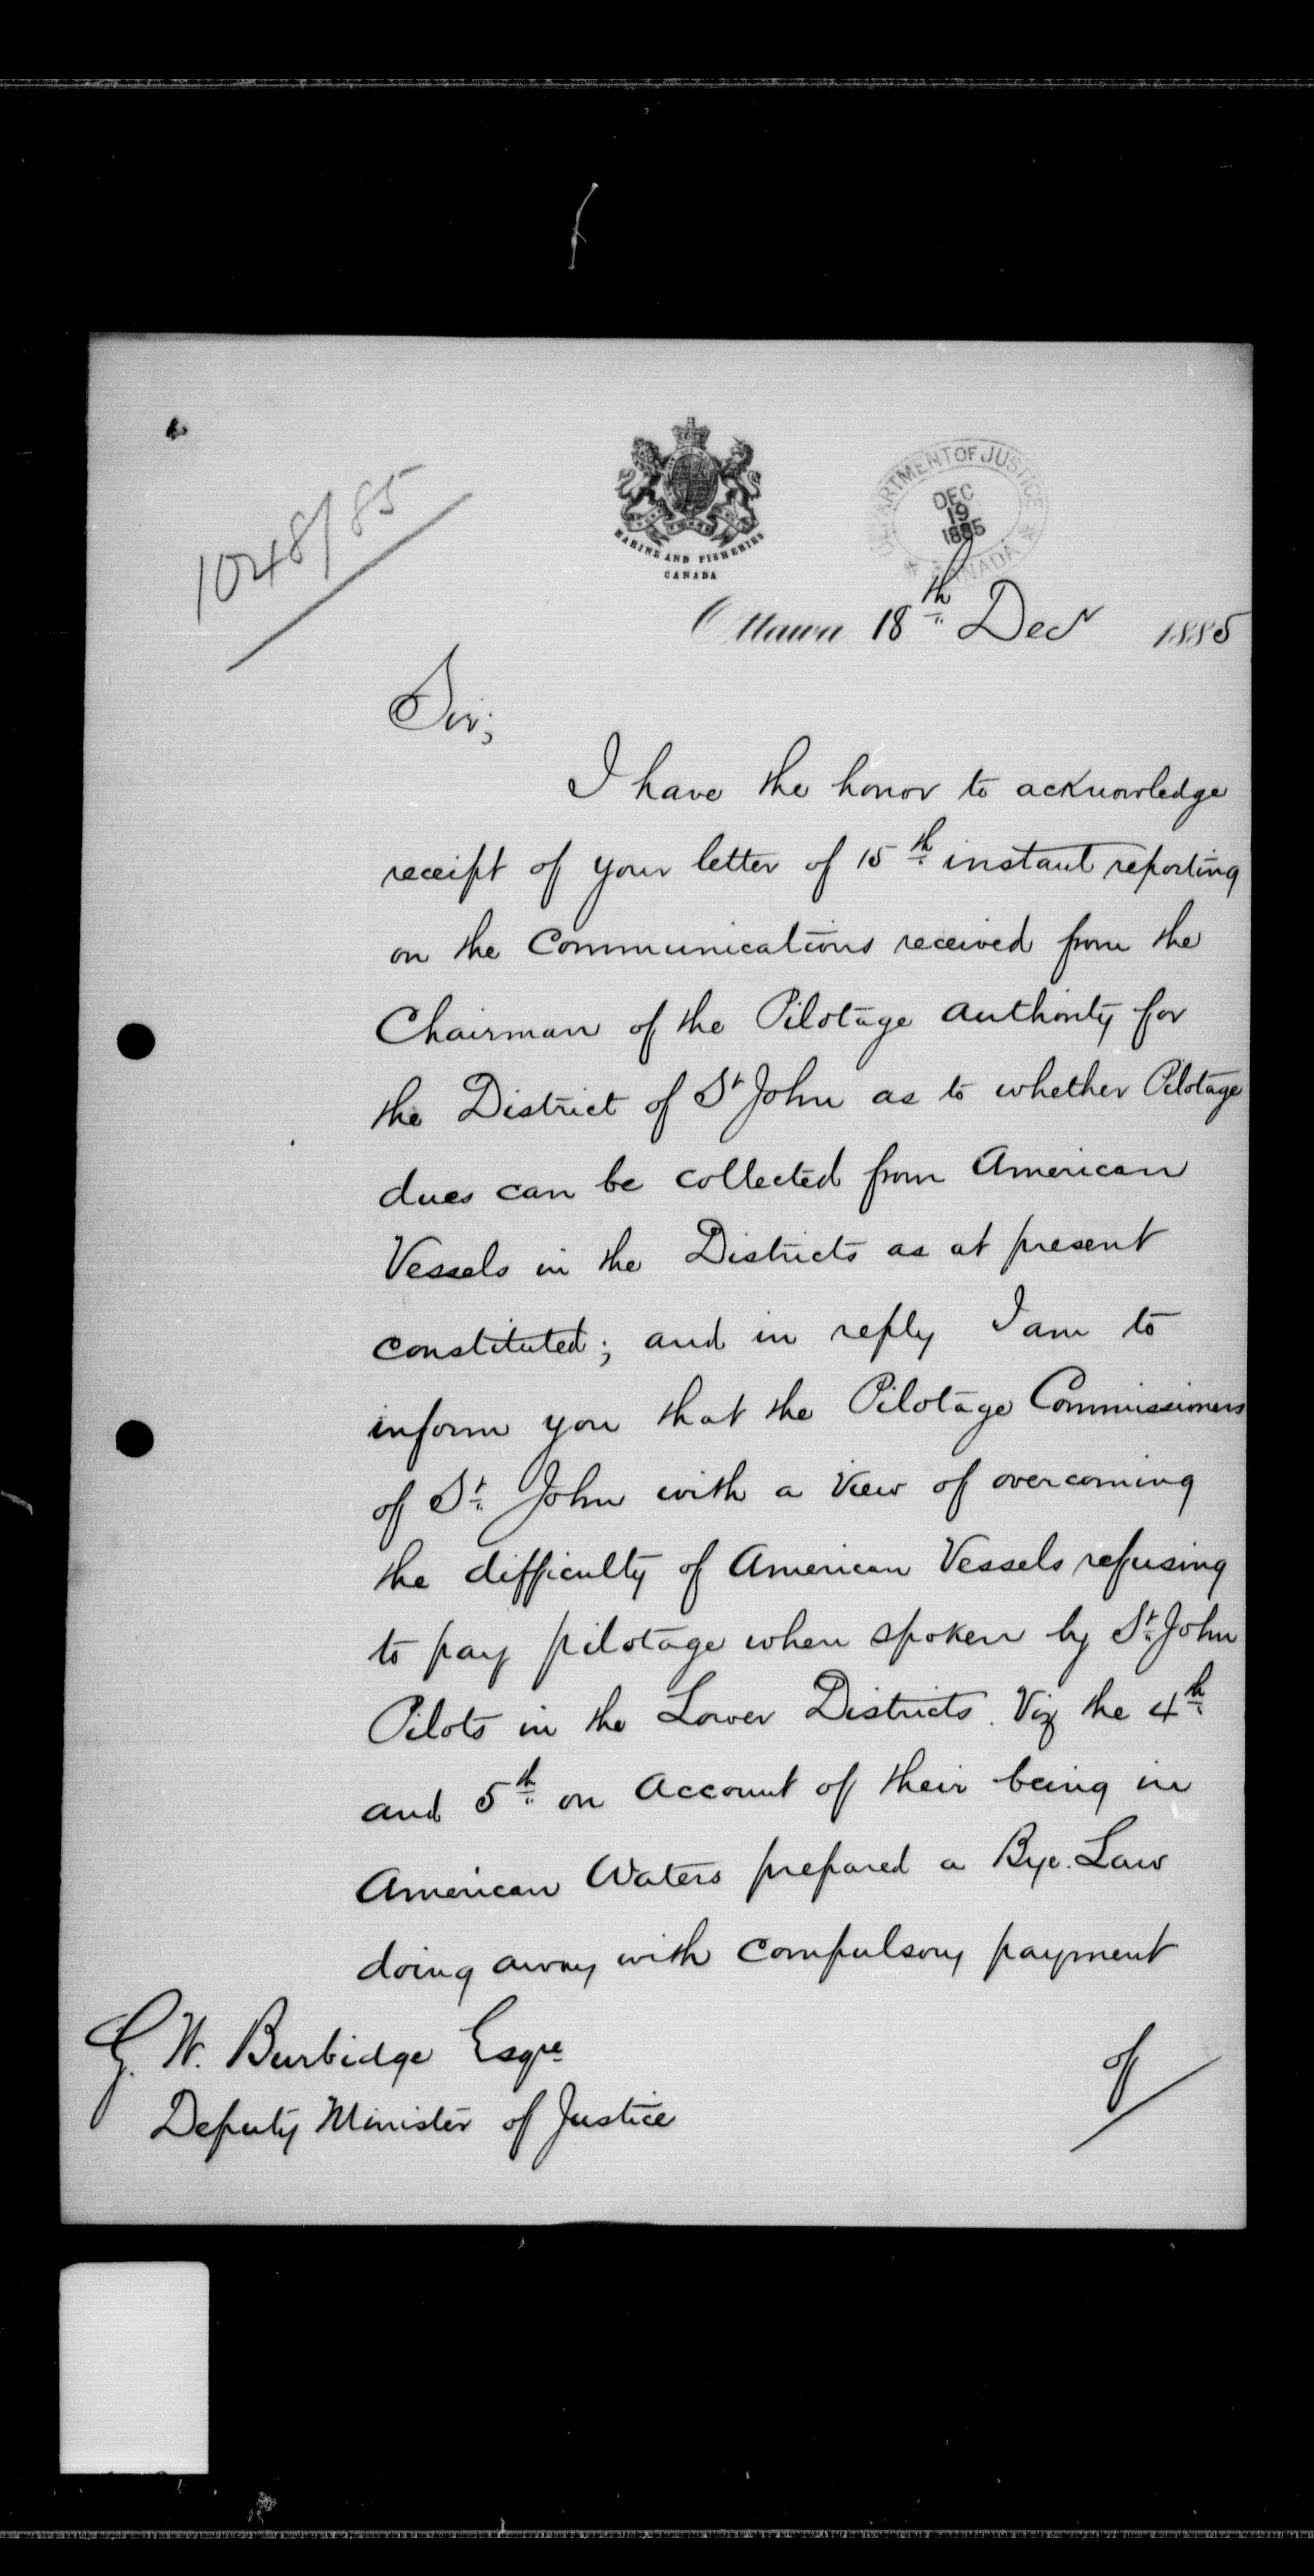 1048/85
MARINE AND FISHERIES
CANADA
DEPARTMENT OF JUSTICE
DEC
19
1885
CANADA
Ottawa 18th Decr 1885
Sir;
I have the honor to acknowledge
receipt of your letter of 15th instant reporting
on the Communications received from the
Chairman of the Pilotage authority for
the District of St John as to whether Pilotage
dues can be collected from American
Vessels in the Districts as at present
constituted; and in reply I am to
inform you that the Pilotage Commissioners
of St. John with a view of overcoming
the difficulty of American Vessels refusing
to pay pilotage when spoken by St. John
Pilots in the Lower Districts. Viz the 4th
and 5th on account of their being in
American Waters prepared a Bye-Law
doing away with compulsory payment
of
G. W. Burbidge Esqre
Deputy Minister of Justice